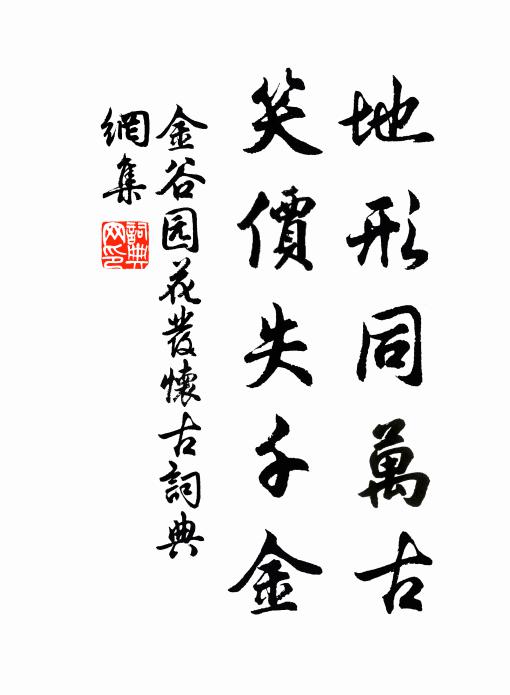 地形同萬古
笑價失千金
金谷园花發懷古詞典
網集
詞典網印